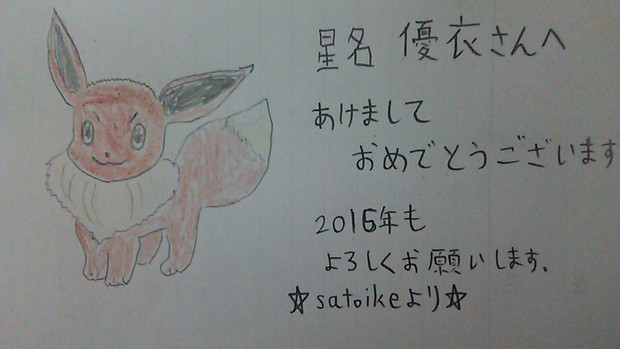 星名 優衣さんへ
あけまして
おめでとうございます
2016年も
よろしくお願いします.
☆satoikeより☆